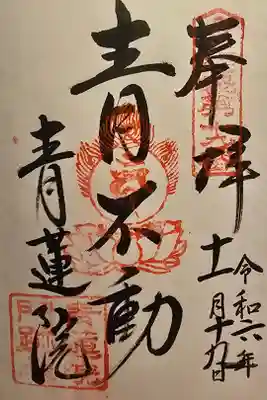 奉拝
令和六年
十一月十九日
青不動
青蓮院